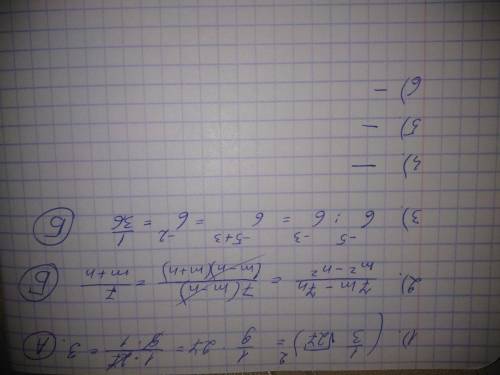 1). (1/3 √27)² = 1/9 · 27 = 1·27/9·1 = 3. (A)
2). 7m - 7n / m² - n² = 7(m-n) / (m-n)(m+n) = 7 / m+n (Б)
3). 6⁻⁵ : 6⁻³ = 6⁻⁵⁺³ = 6⁻² = 1/36 (Б)
4) —
5) —
6) —